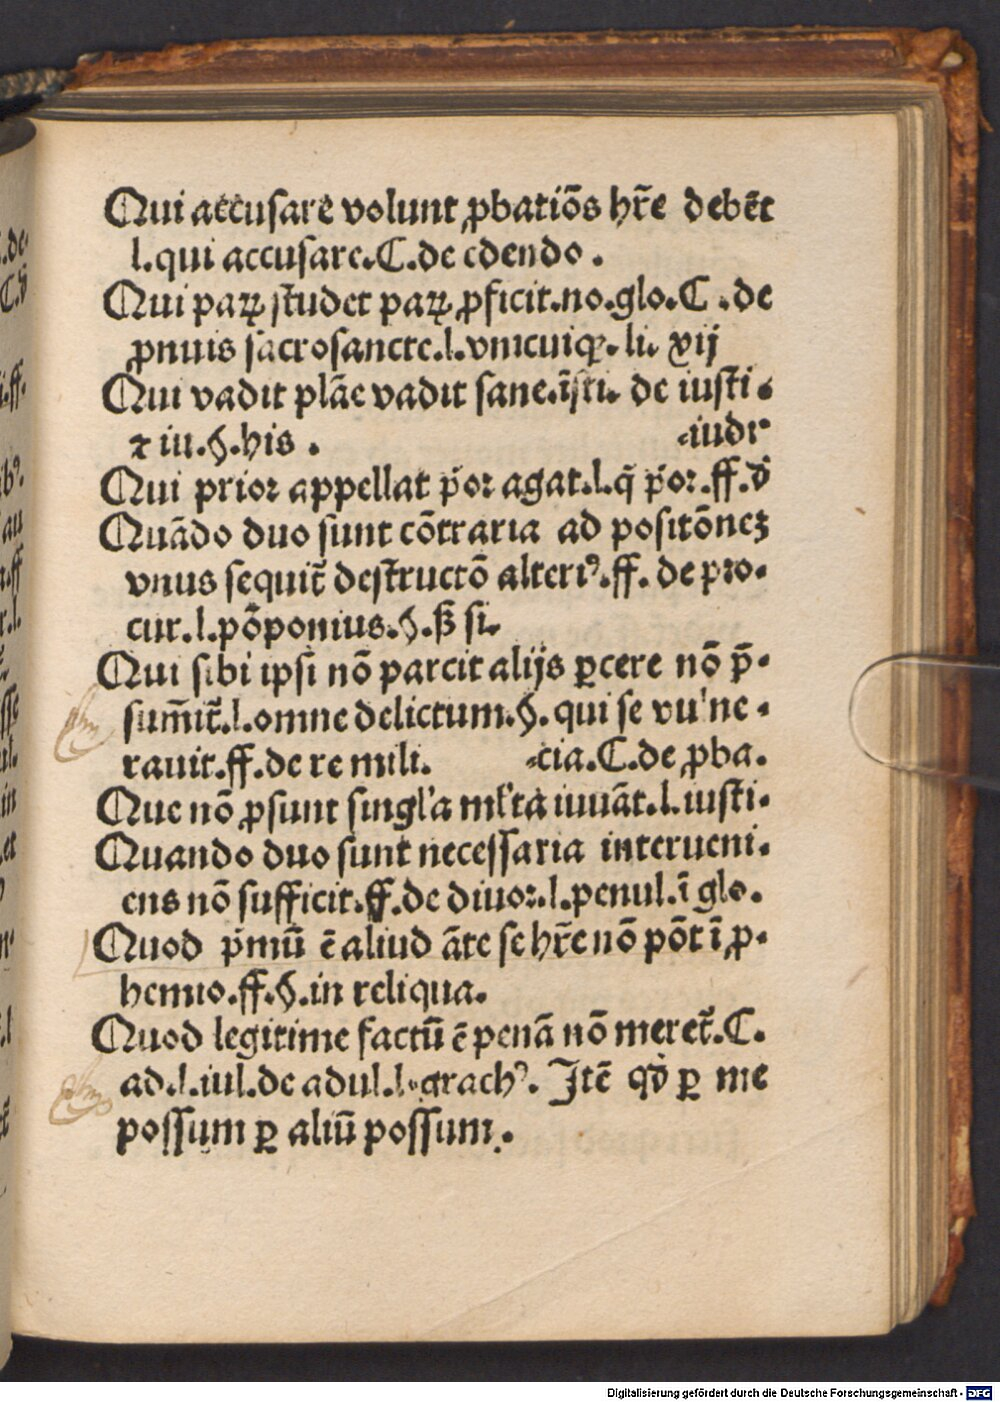 Qui accusare volunt ꝓbatiōs hr̄e debēt
l.qui accusare.C.de edendo .
Qui paꝝ studet paꝝ ꝓficit.no.glo.C .de
ꝓnuis sacrosancte.l.vnicuiqꝫ. li. xij
Qui vadit plāe vadit sane.īsti. de iusti-
⁊ iu.§.his . -iudi
Qui prior appellat p̄or agat.l.q̄ p̄or.ff.d̄
Quādo duo sunt cōtraria ad positōneꝫ
vnus sequit̄ destructō alteriꝰ.ff. de pro-
cur.l.pōponius.§.sꝫ si.
Qui sibi ipsi nō parcit alijs ꝑcere nō p̄-
sum̄it̄.l.omne delictum.§. qui se vulne-
rauit.ff.de re mili. -cia.C.de ꝓba.
Que nō ꝓsunt singl'a ml'ta iuuāt.l.iusti-
Quando duo sunt necessaria interueni-
ens nō sufficit.ff.de diuor.l.penul.ī glo.
Quod p̄mū ē aliud āte se hr̄e nō pōt ī ꝓ-
hemio.ff.§.in reliqua.
Quod legitime factū ē penā nō meret̄.C.
ad.l.iul.de adul.l.grachꝰ. Itē qd̄ ꝑ me
possum ꝑ aliū possum.
Digitalisierung gefördert durch die Deutsche Forschungsgemeinschaft - DFG